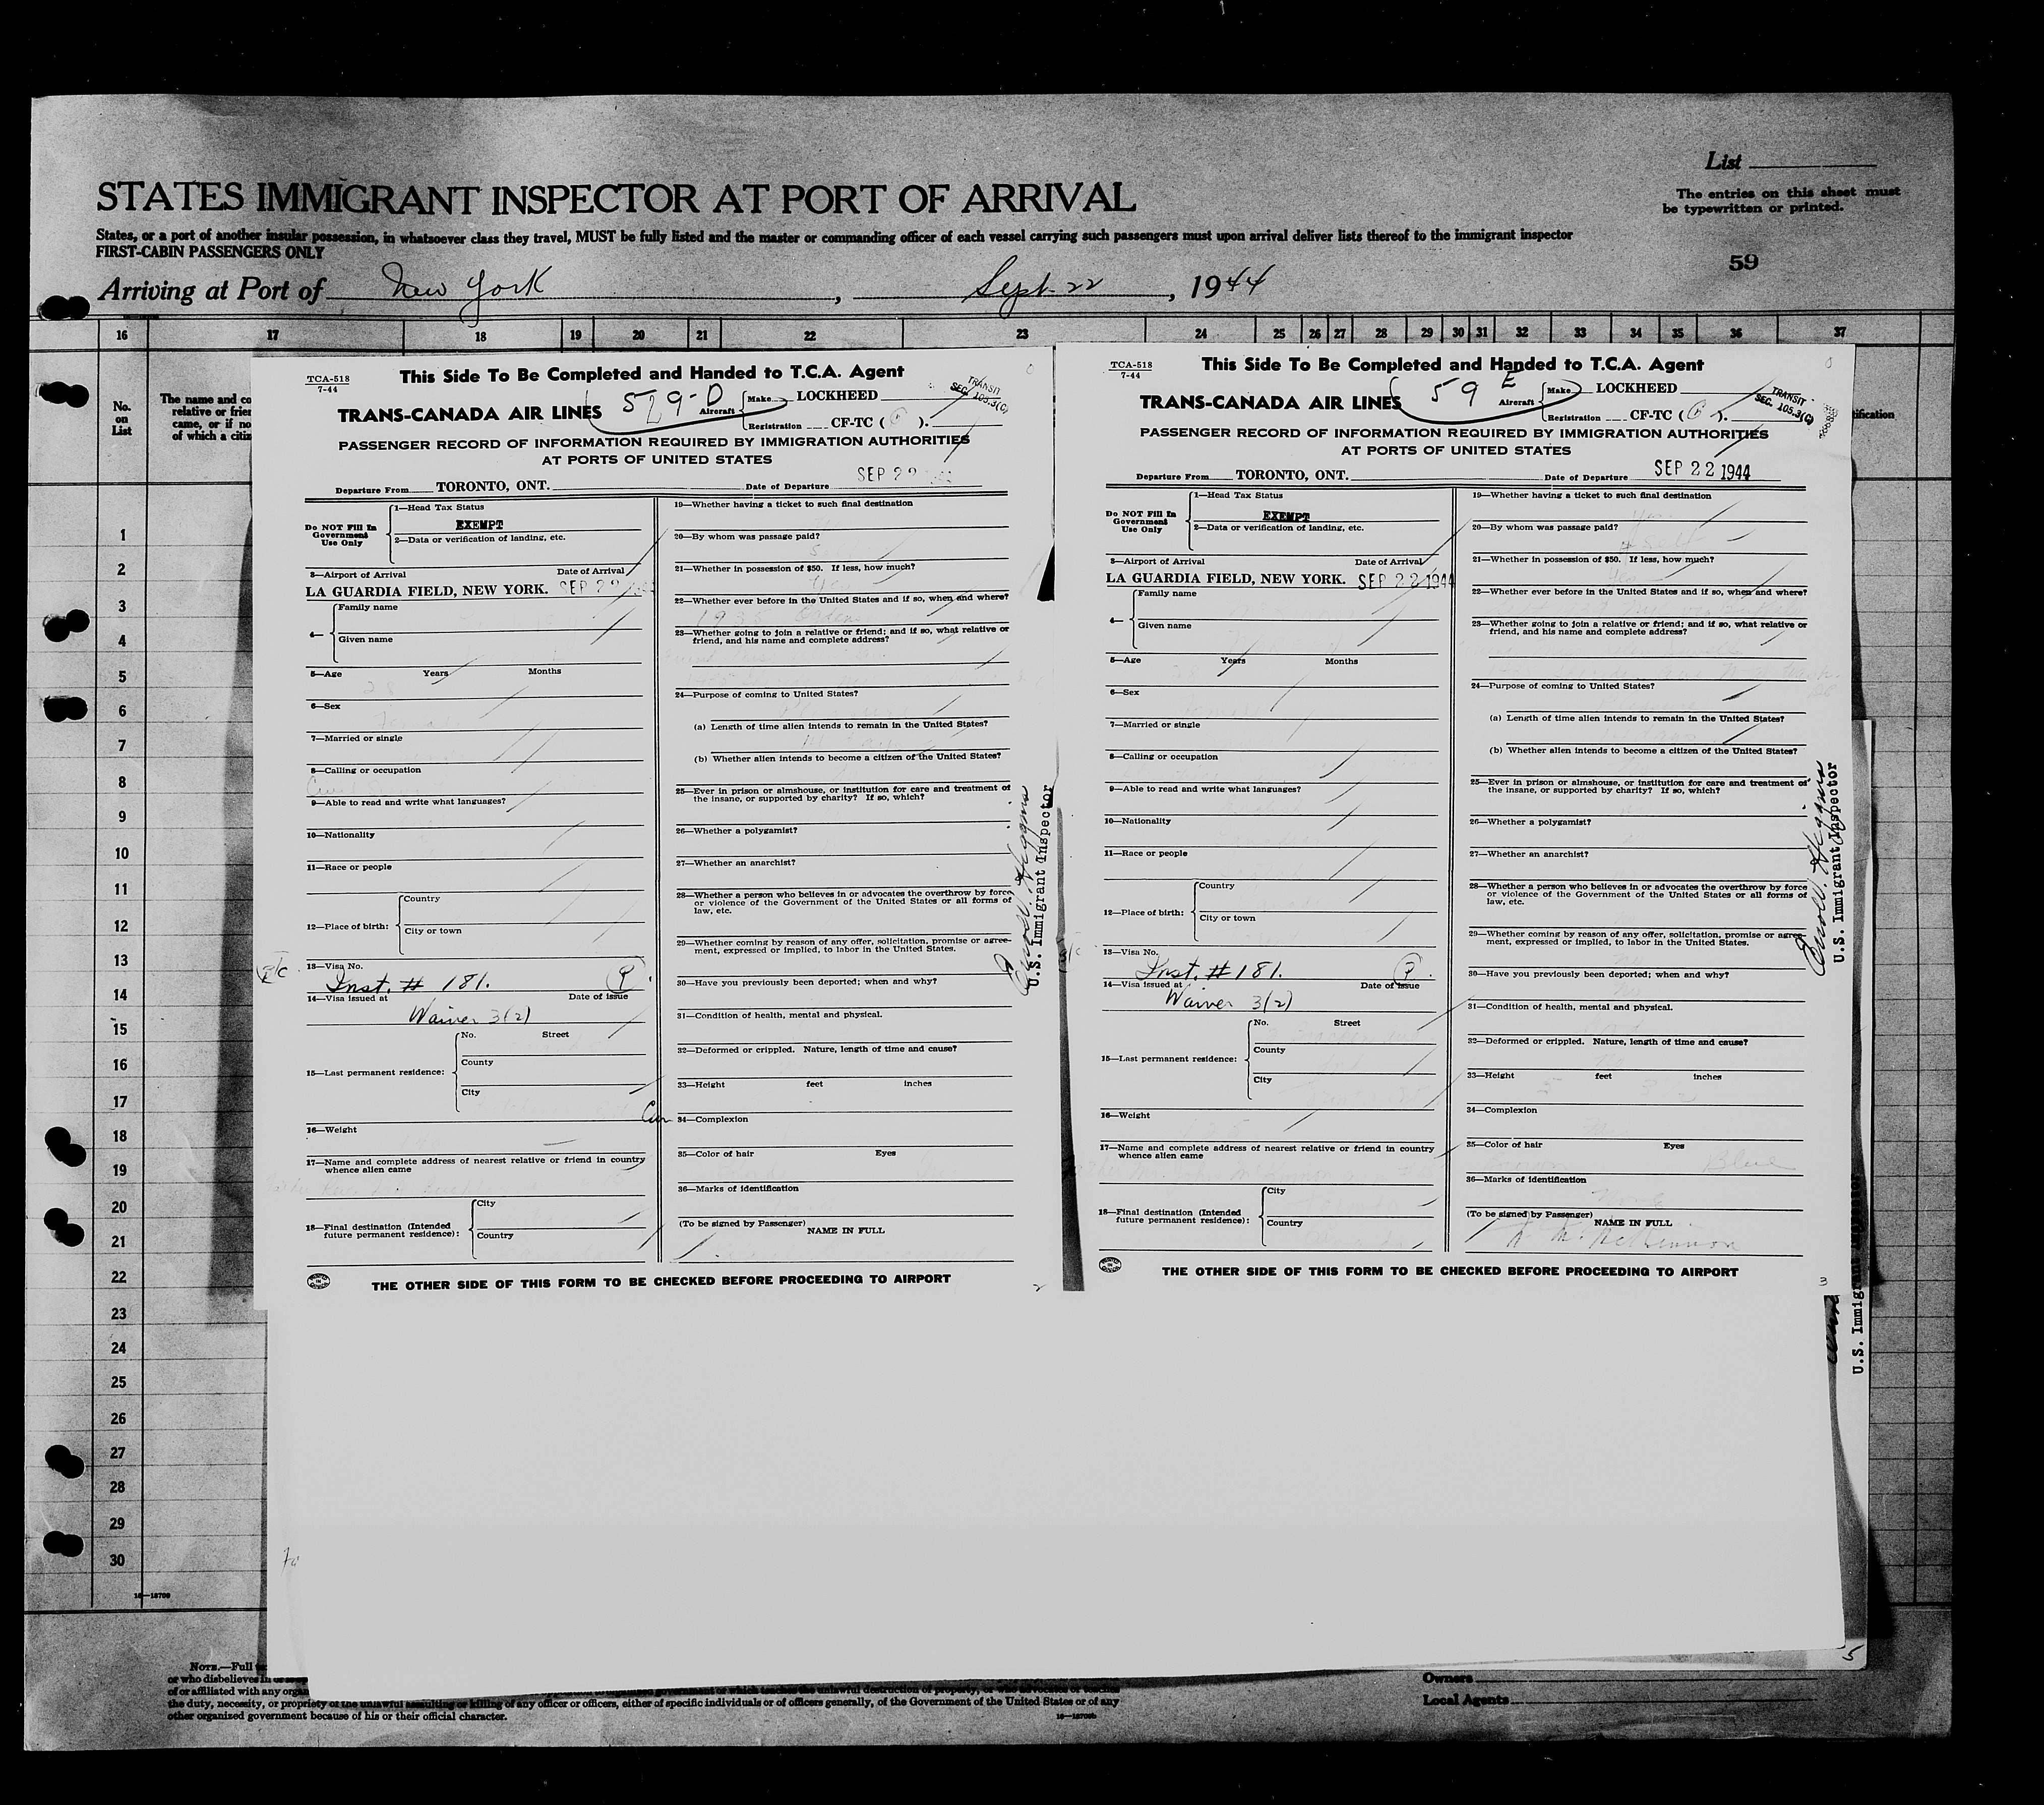 List
STATES IMMIGRANT INSPECTOR AT PORT OF ARRIVAL
The entries on this sheet must
be typewritten or printed.
States, or a port of another insular possession, in whatsoever class they travel, MUST be fully listed and the master or commanding officer of each vessel carrying such passengers must upon arrival deliver lists thereof to the immigrant inspector
FIRST-CABIN PASSENGERS ONLY
59
Arriving at Port of New York, Sept 22, 1944
16 17 18 19 20 21 22 23 24 25 26 27 28 29 30 31 32 33 34 35 36 37
No.
on
List
The name and co
relative or frien
came, or if no
of which a citiz
tification
1
2
3
4
5
6
7
8
9
10
11
12
13
14
15
16
17
18
19
20
21
22
23
24
25
26
27
28
29
30
16—18709
TCA-518
7-44
This Side To Be Completed and Handed to T.C.A. Agent
TRANS-CANADA AIR LINES
59-D
Aircraft
Make LOCKHEED
Registration CF-TC ( ).
TRANSIT
SEC. 105.3(C)
PASSENGER RECORD OF INFORMATION REQUIRED BY IMMIGRATION AUTHORITIES
AT PORTS OF UNITED STATES
Departure From TORONTO, ONT. Date of Departure SEP 22
Do NOT Fill In
Government
Use Only
1—Head Tax Status
EXEMPT
2—Data or verification of landing, etc.
3—Airport of Arrival Date of Arrival
LA GUARDIA FIELD, NEW YORK. SEP 22
4—
Family name
Given name
5—Age Years Months
28
6—Sex
7—Married or single
8—Calling or occupation
9—Able to read and write what languages?
10—Nationality
11—Race or people
12—Place of birth:
Country
City or town
13—Visa No.
Inst. # 181. P
14—Visa issued at Date of issue
Waiver 3(2)
15—Last permanent residence:
No. Street
County
City
16—Weight
17—Name and complete address of nearest relative or friend in country
whence alien came
18—Final destination (Intended
future permanent residence):
City
Country
19—Whether having a ticket to such final destination
20—By whom was passage paid?
21—Whether in possession of $50. If less, how much?
22—Whether ever before in the United States and if so, when and where?
23—Whether going to join a relative or friend; and if so, what relative or
friend, and his name and complete address?
24—Purpose of coming to United States?
(a) Length of time alien intends to remain in the United States?
(b) Whether alien intends to become a citizen of the United States?
25—Ever in prison or almshouse, or institution for care and treatment of
the insane, or supported by charity? If so, which?
26—Whether a polygamist?
27—Whether an anarchist?
28—Whether a person who believes in or advocates the overthrow by force
or violence of the Government of the United States or all forms of
law, etc.
29—Whether coming by reason of any offer, solicitation, promise or agree-
ment, expressed or implied, to labor in the United States.
30—Have you previously been deported; when and why?
31—Condition of health, mental and physical.
32—Deformed or crippled. Nature, length of time and cause?
33—Height feet inches
34—Complexion
35—Color of hair Eyes
36—Marks of identification
(To be signed by Passenger)
NAME IN FULL
THE OTHER SIDE OF THIS FORM TO BE CHECKED BEFORE PROCEEDING TO AIRPORT
2
U.S. Immigrant Inspector
TCA-518
7-44
This Side To Be Completed and Handed to T.C.A. Agent
TRANS-CANADA AIR LINES
59 E
Aircraft
Make LOCKHEED
Registration CF-TC ( ).
TRANSIT
SEC. 105.3(C)
PASSENGER RECORD OF INFORMATION REQUIRED BY IMMIGRATION AUTHORITIES
AT PORTS OF UNITED STATES
Departure From TORONTO, ONT. Date of Departure SEP 22 1944
Do NOT Fill In
Government
Use Only
1—Head Tax Status
EXEMPT
2—Data or verification of landing, etc.
3—Airport of Arrival Date of Arrival
LA GUARDIA FIELD, NEW YORK. SEP 22 1944
4—
Family name
Given name
5—Age Years Months
6—Sex
7—Married or single
8—Calling or occupation
9—Able to read and write what languages?
10—Nationality
11—Race or people
12—Place of birth:
Country
City or town
13—Visa No.
Inst. # 181. P
14—Visa issued at Date of issue
Waiver 3(2)
15—Last permanent residence:
No. Street
County
City
16—Weight
17—Name and complete address of nearest relative or friend in country
whence alien came
18—Final destination (Intended
future permanent residence):
City
Country
19—Whether having a ticket to such final destination
20—By whom was passage paid?
21—Whether in possession of $50. If less, how much?
22—Whether ever before in the United States and if so, when and where?
23—Whether going to join a relative or friend; and if so, what relative or
friend, and his name and complete address?
24—Purpose of coming to United States?
(a) Length of time alien intends to remain in the United States?
(b) Whether alien intends to become a citizen of the United States?
25—Ever in prison or almshouse, or institution for care and treatment of
the insane, or supported by charity? If so, which?
26—Whether a polygamist?
27—Whether an anarchist?
28—Whether a person who believes in or advocates the overthrow by force
or violence of the Government of the United States or all forms of
law, etc.
29—Whether coming by reason of any offer, solicitation, promise or agree-
ment, expressed or implied, to labor in the United States.
30—Have you previously been deported; when and why?
31—Condition of health, mental and physical.
32—Deformed or crippled. Nature, length of time and cause?
33—Height 5 feet inches
34—Complexion
35—Color of hair Eyes
Blue
36—Marks of identification
None
(To be signed by Passenger)
NAME IN FULL
THE OTHER SIDE OF THIS FORM TO BE CHECKED BEFORE PROCEEDING TO AIRPORT
3
U.S. Immigrant Inspector
U.S. Immig
5
NOTE.—Full
or who disbelieves in or
of or affiliated with any organ
the duty, necessity, or propriety of the unlawful assaulting or killing of any officer or officers, either of specific individuals or of officers generally, of the Government of the United States or of any
other organized government because of his or their official character.
16—18709b
Owners
Local Agents